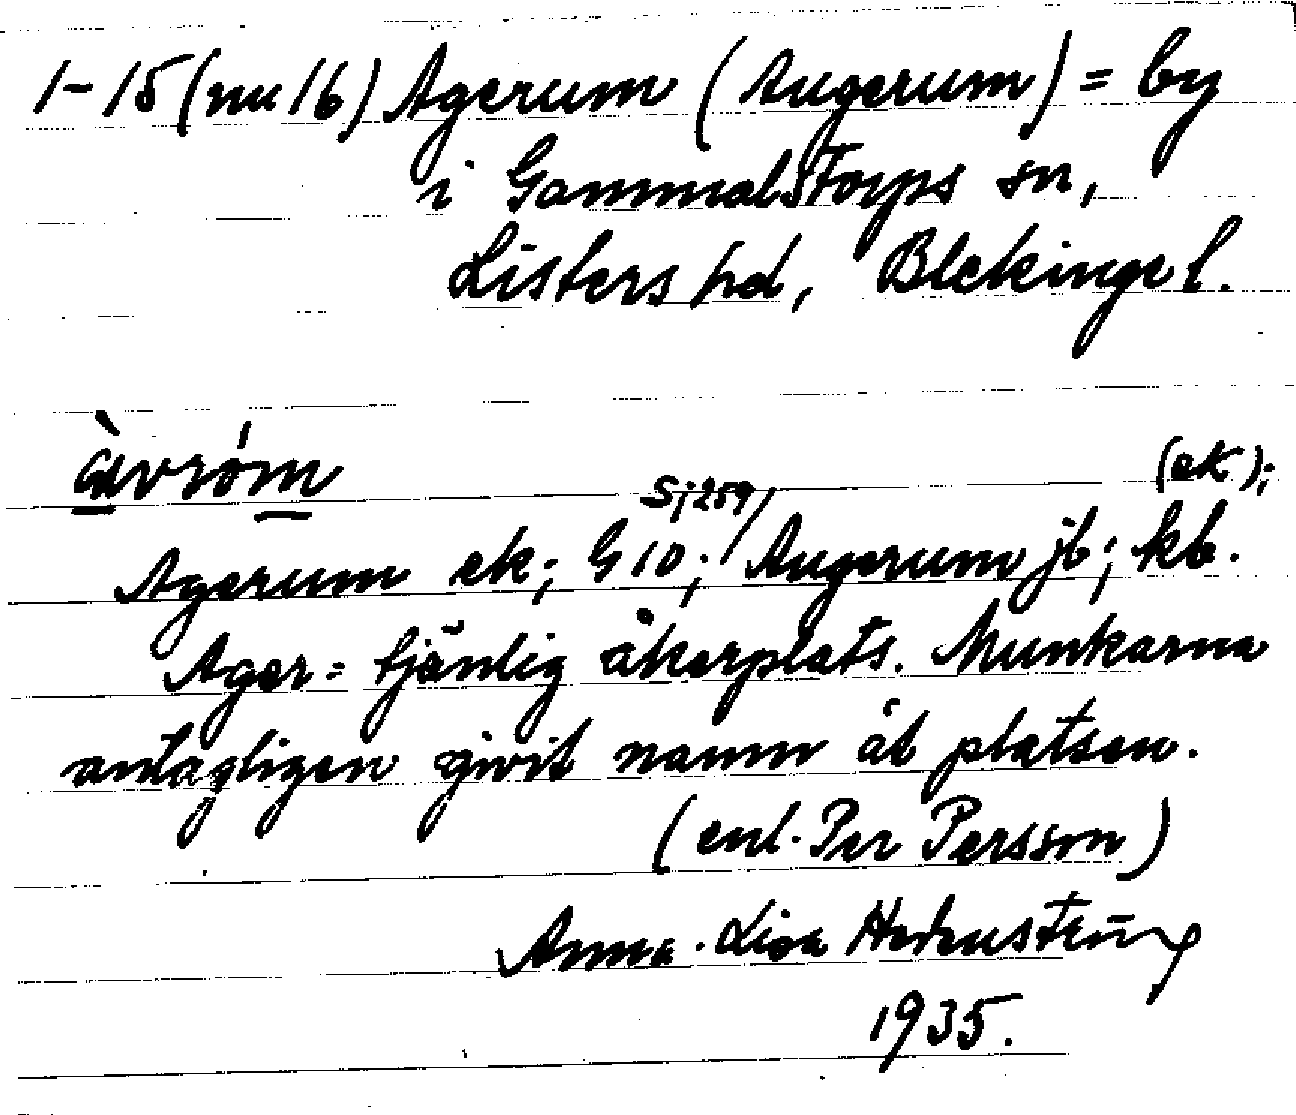 1-15 (nu 16) Agerum (Augerum) = by
i Gammalstorps sn,
Listers hd, Blekinge l.
àvróm
Sj 259/ (ek);
Agerum ek; G 10; Augerum jb; kb.
Ager = tjänlig åkerplats. Munkarna
antagligen givit namn åt platsen.
(enl. Per Persson)
Anna-Lisa
1935.